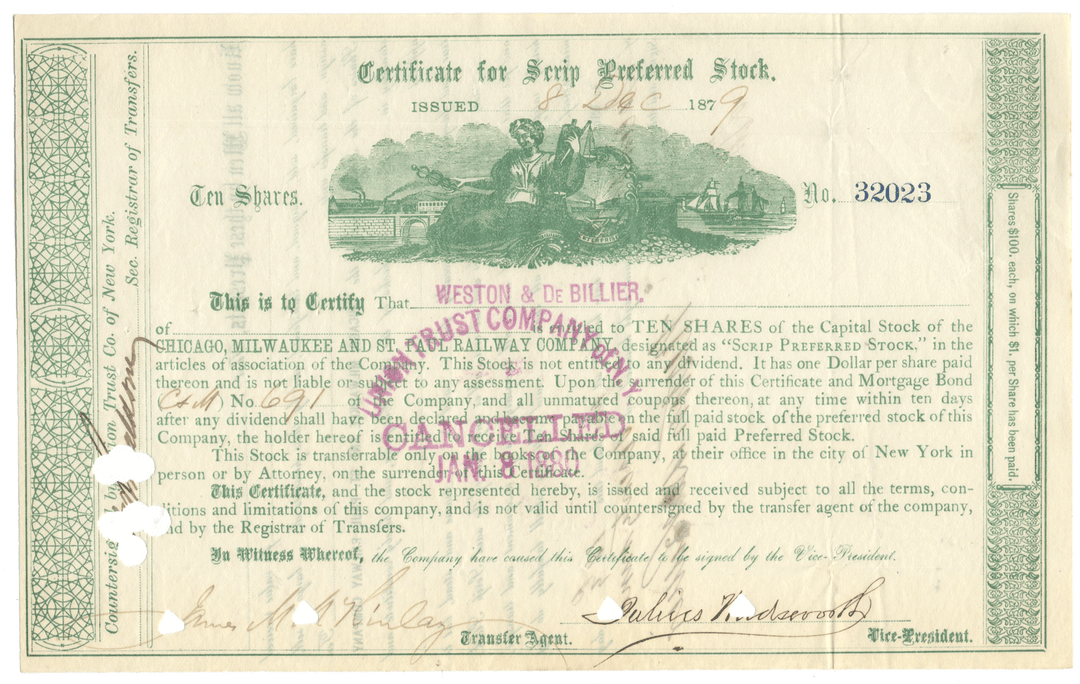 Certificate for Scrip Preferred Stock.
ISSUED 8 Dec 1879
Ten Shares.
No. 32023
ENTERPRISE
This is to Certify That WESTON & DE BILLIER.
of is entitled to TEN SHARES of the Capital Stock of the
CHICAGO, MILWAUKEE AND ST. PAUL RAILWAY COMPANY, designated as "SCRIP PREFERRED STOCK," in the
articles of association of the Company. This Stock is not entitled to any dividend. It has one Dollar per share paid
thereon and is not liable or subject to any assessment. Upon the surrender of this Certificate and Mortgage Bond
C & M No. 691 of the Company, and all unmatured coupons thereon, at any time within ten days
after any dividend shall have been declared and become payable on the full paid stock of the preferred stock of this
Company, the holder hereof is entitled to receive Ten Shares of said full paid Preferred Stock.
This Stock is transferrable only on the books of the Company, at their office in the city of New York in
person or by Attorney, on the surrender of this Certificate.
This Certificate, and the stock represented hereby, is issued and received subject to all the terms, con-
ditions and limitations of this company, and is not valid until countersigned by the transfer agent of the company,
and by the Registrar of Transfers.
In Witness Whereof, the Company have caused this Certificate to be signed by the Vice-President.
James M. McKinlay
Transfer Agent.
Julius Wadsworth
Vice-President.
UNION TRUST COMPANY OF N.Y.
CANCELLED
JAN. 8
Countersig by on Trust Co. of New York.
Sec. Registrar of Transfers.
Shares $100. each, on which $1. per Share has been paid.